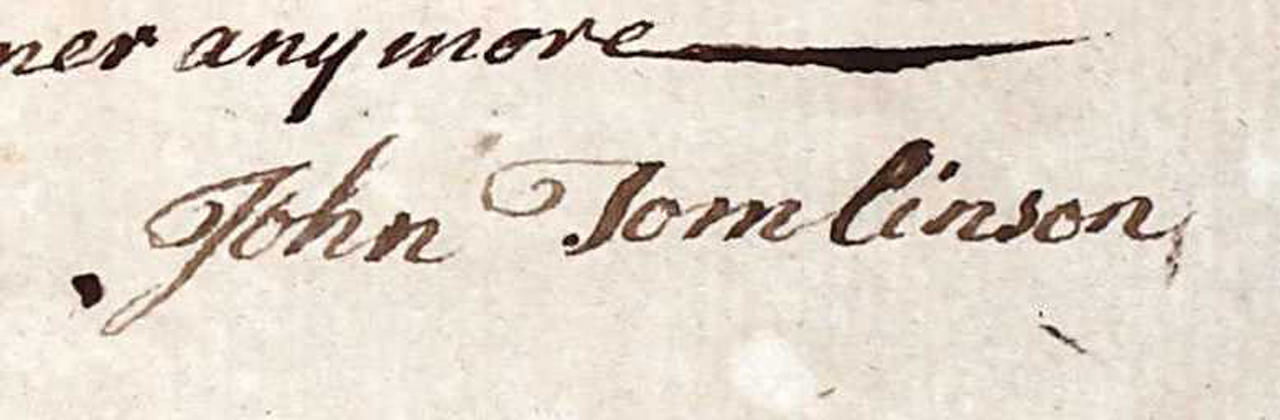 ner any more
John Tomlinson